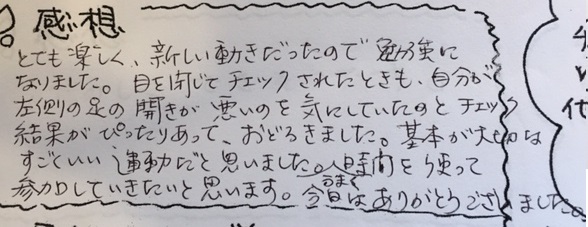 感想
とても楽しく、新しい動きだったので勉強に
なりました。目を閉じてチェックされたときも、自分が
左側の足の開きが悪いのを気にしていたのとチェック
結果がぴったりあって、おどろきました。基本が大切な
すごくいい運動だと思いました。時間をうまく使って
参加していきたいと思います。今日はありがとうございました。